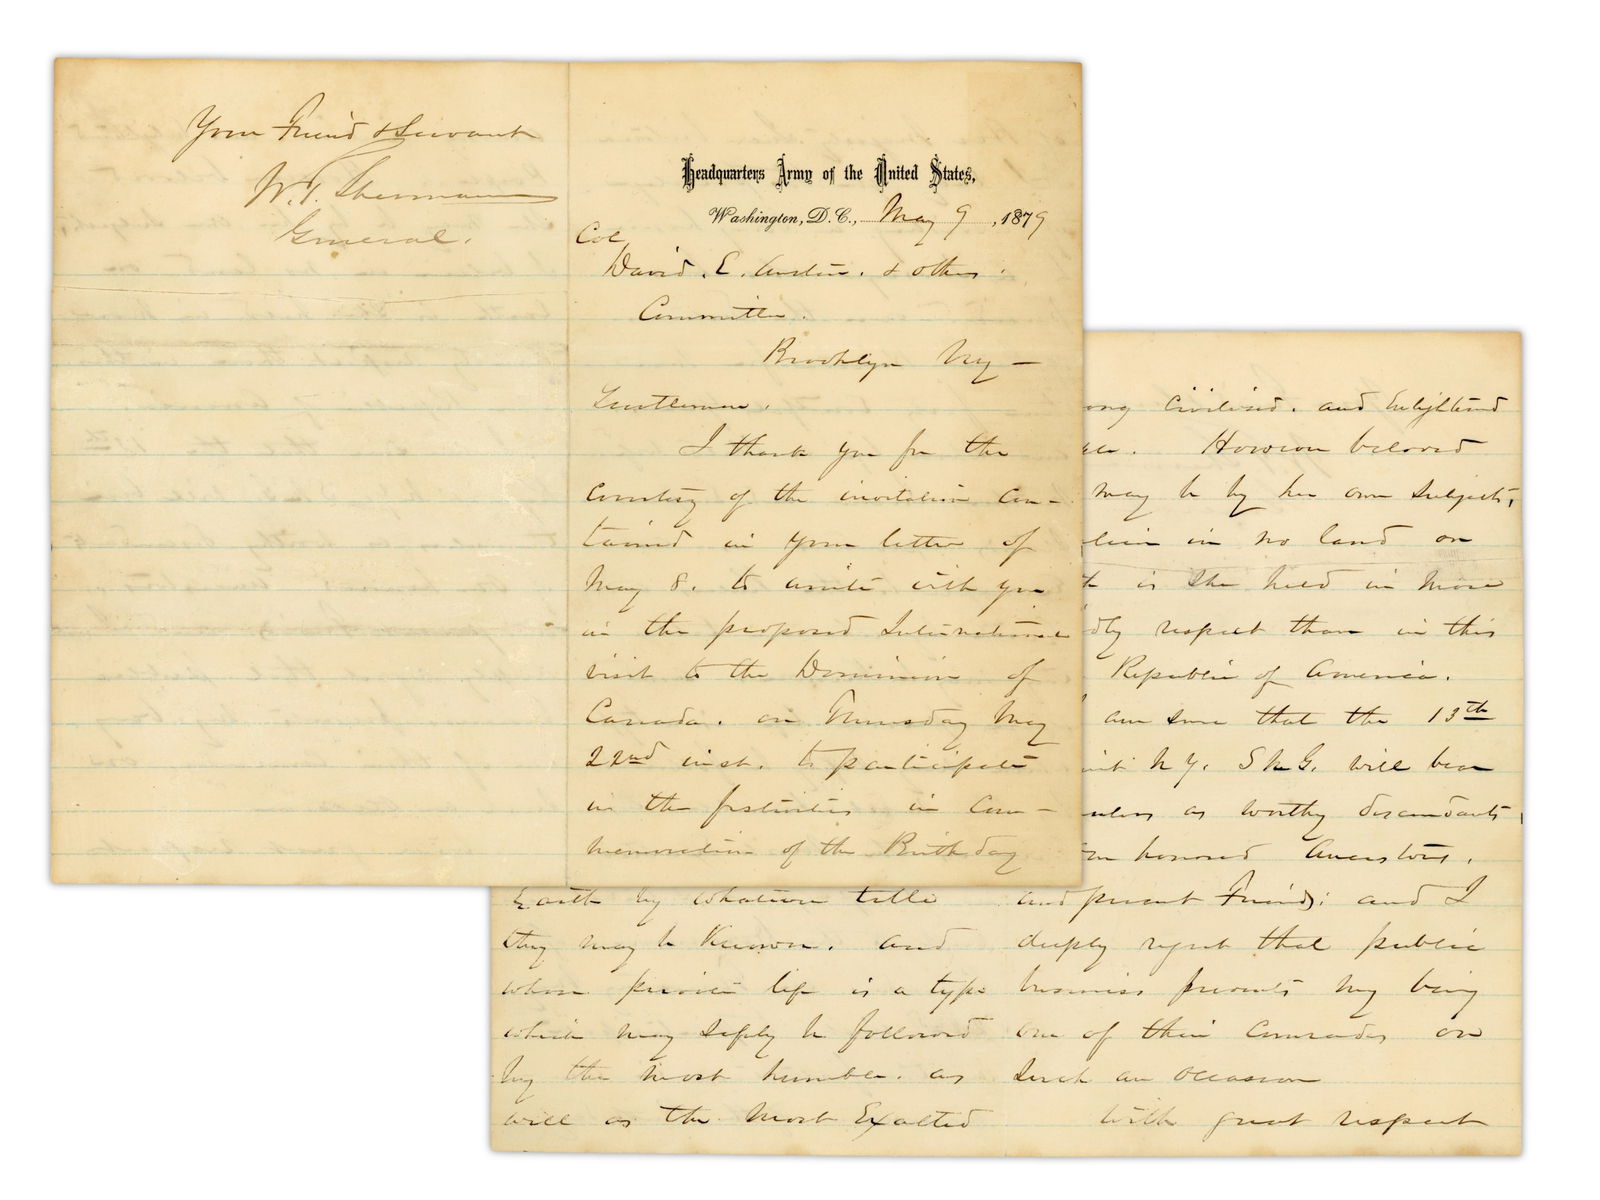 Headquarters Army of the United States,
Washington, D.C., May 9, 1879
Col
David. E. Austin. & others.
Committee.
Brooklyn Ny—
Gentlemen.
I thank you for the
courtesy of the invitation con-
tained in your letter of
May 8. to unite with you
in the proposed International
visit to the Dominion of
Canada. on Thursday May
22nd inst. to participate
in the festivities in com-
memoration of the Birthday
Earth by whatever title
they may be Known. and
whose private life is a type
which may safely be followed
by the most humble. as
well as the most Exalted
civilized. and Enlightened
However beloved
may be by her own subjects,
in no land on
is she held in more
respect than in this
Republic of America.
am sure that the 13th
N.Y. S.N.G. will bear
as worthy descendants,
honored Ancestors.
and present Friends: and I
deeply regret that public
business prevents my being
one of their Comrades on
such an occasion
With great respect
Your Friend & Servant
W. T. Sherman
General.